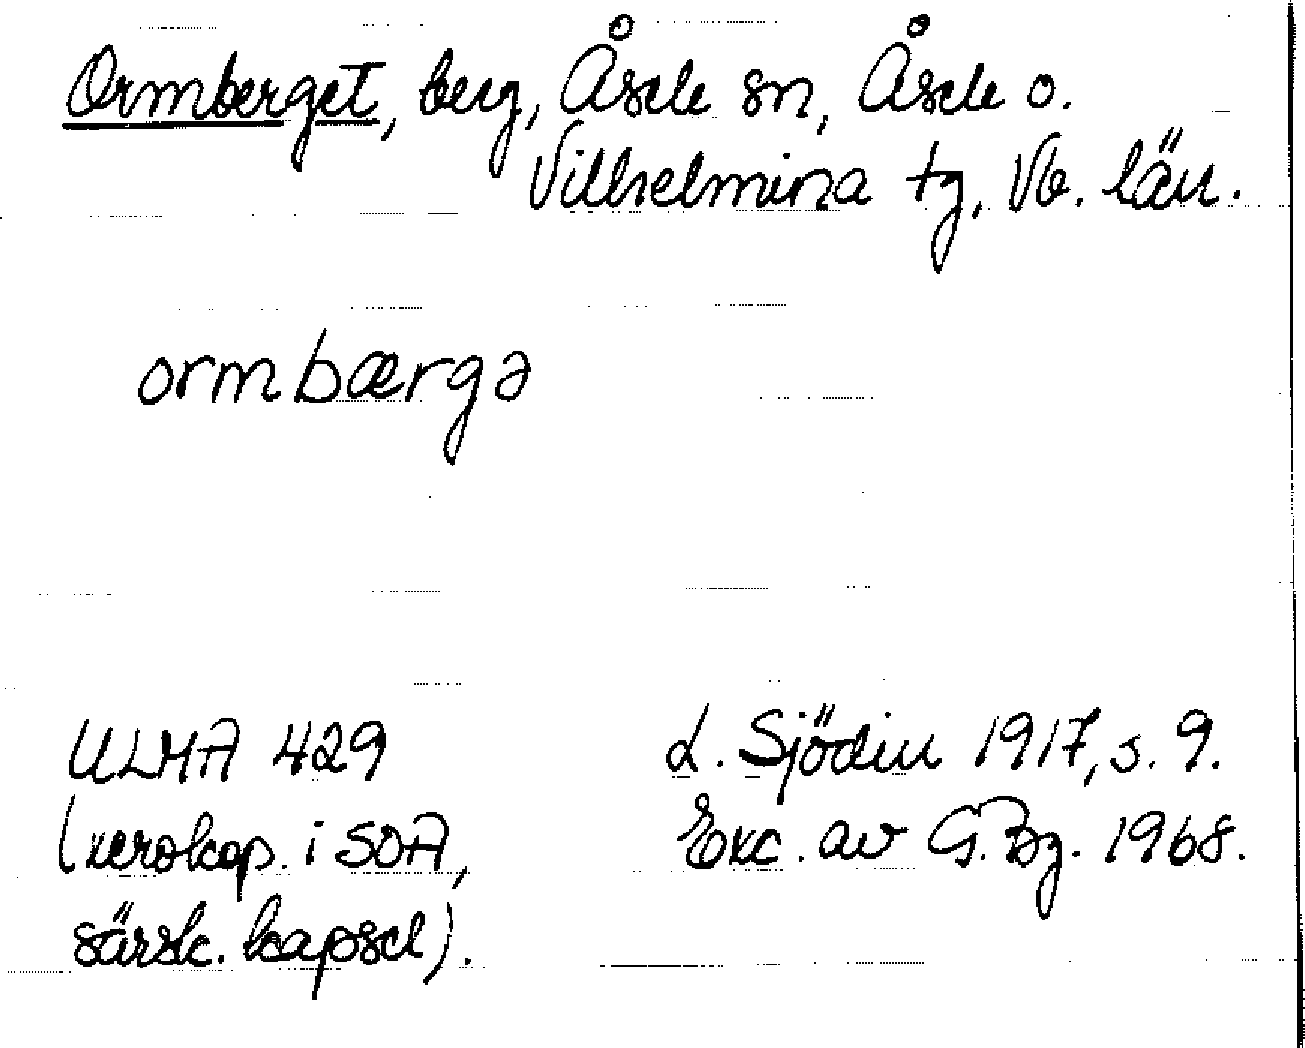 Ormberget, berg, Åsele sn, Åsele o.
Vilhelmina tg, Vb. län.
ormbærgə
ULMA 429
(xerokop. i SOA,
särsk. kapsel).
L. Sjödin 1917, s. 9.
Exc. av G. Bg. 1968.